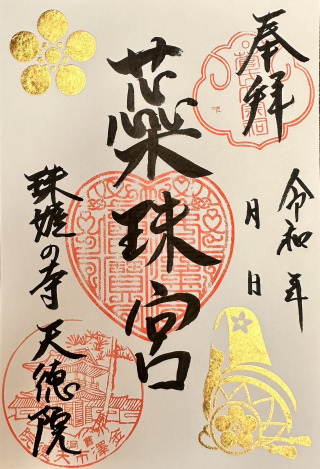 奉拝
令和 年
月 日
蘂珠宮
珠姫の寺 天徳院